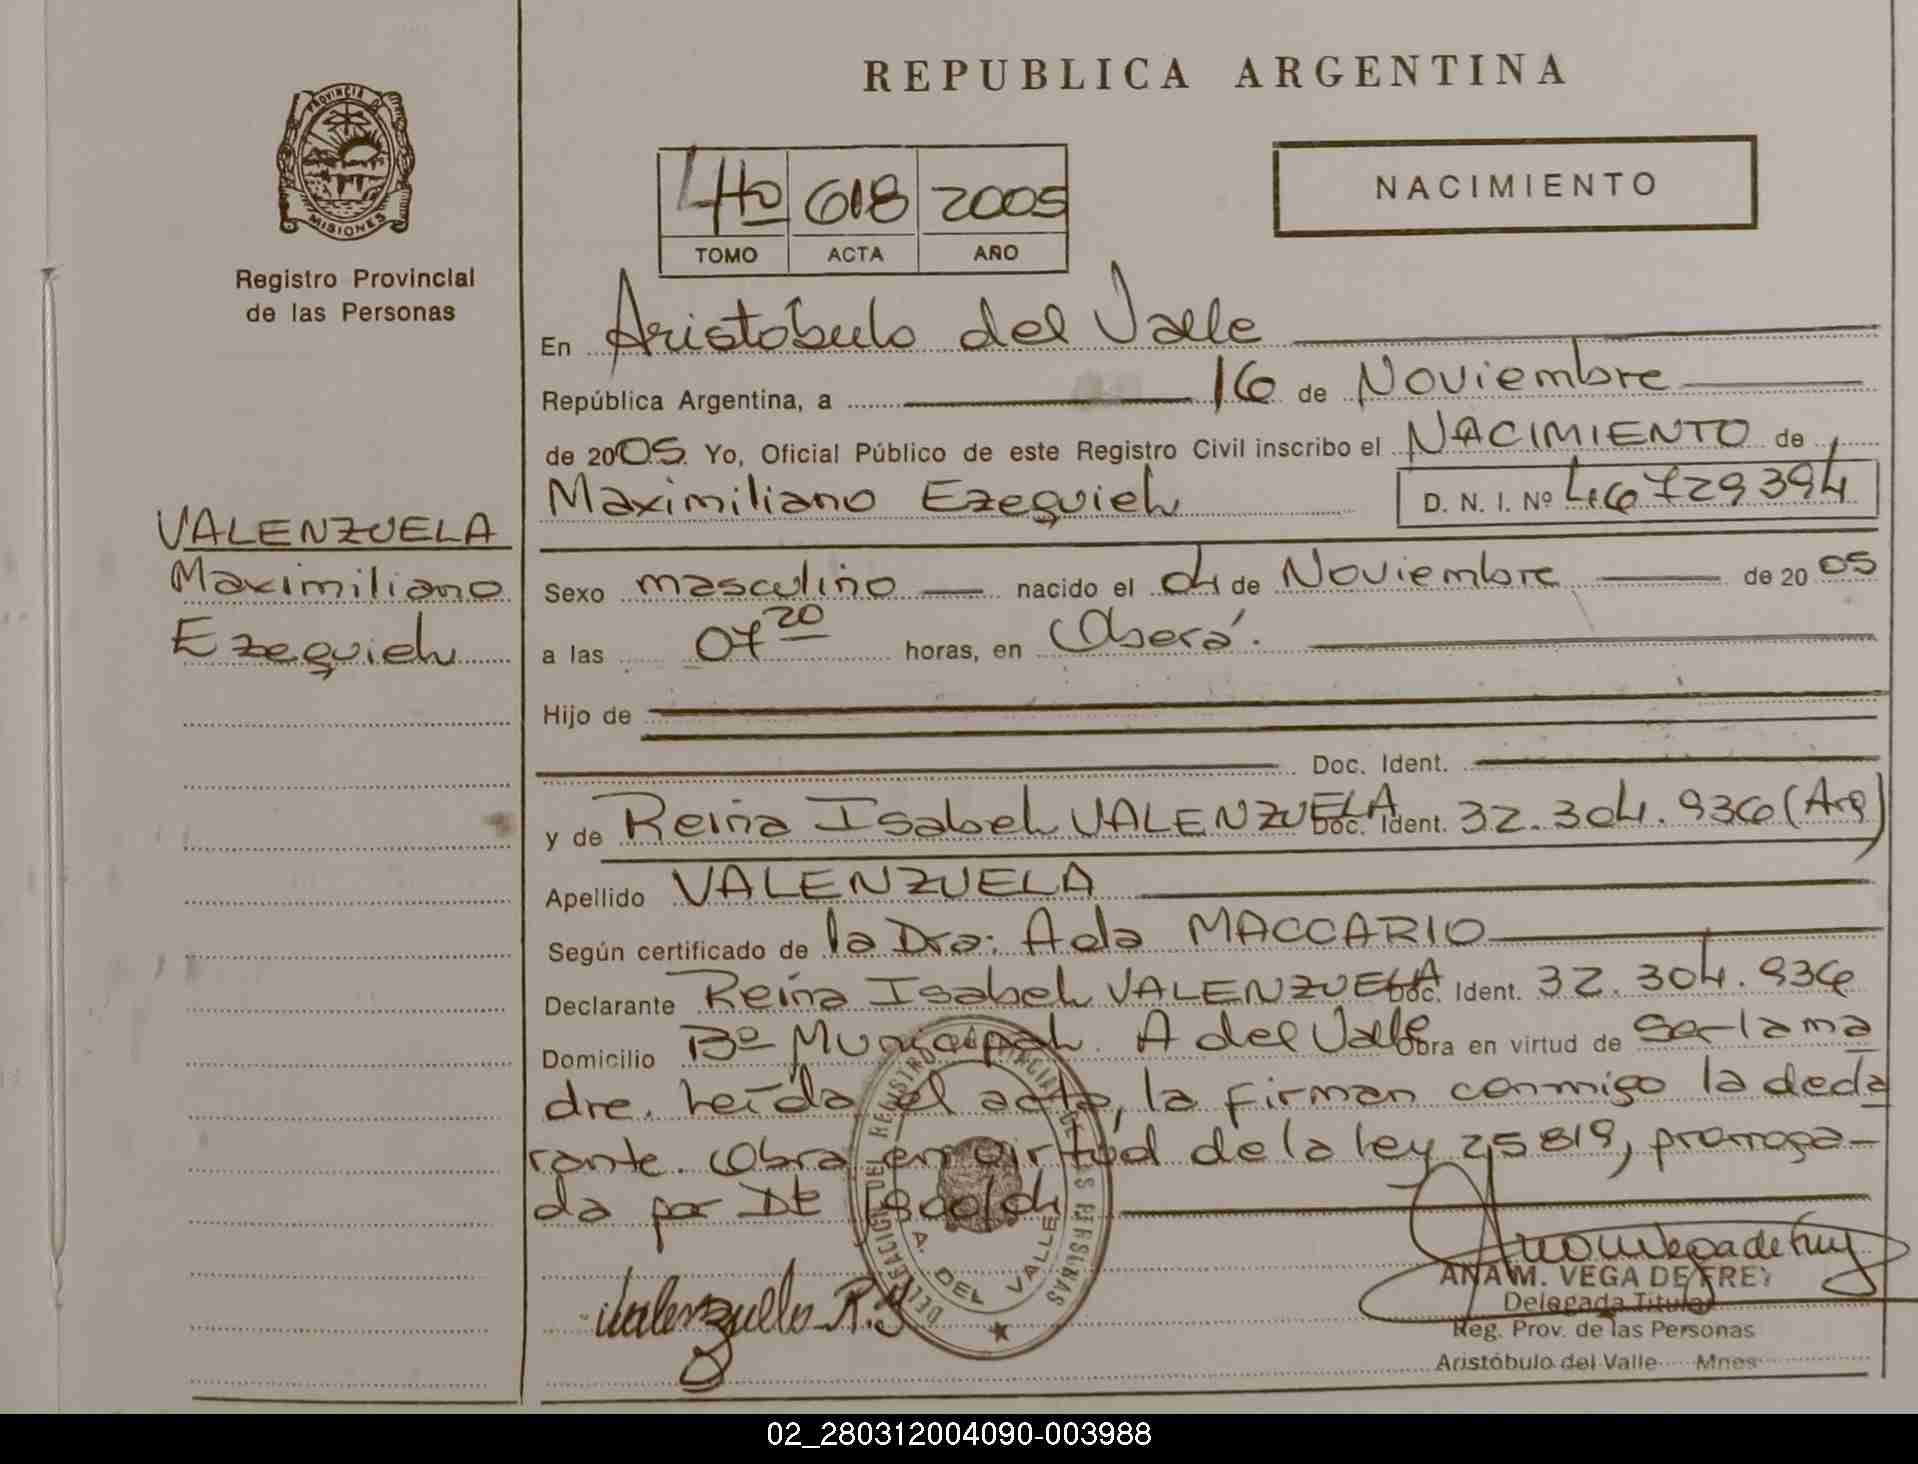 REPUBLICA ARGENTINA
PROVINCIA D
MISIONES
Registro Provincial
de las Personas
4to 618 2005
TOMO ACTA AÑO
NACIMIENTO
En Aristóbulo del Valle
República Argentina, a 16 de Noviembre
de 2005 Yo, Oficial Público de este Registro Civil inscribo el NACIMIENTO de
Maximiliano Ezequiel D. N. I. Nº 46729394
VALENZUELA
Maximiliano
Ezequiel
Sexo masculino nacido el 04 de Noviembre de 2005
a las 07 20 horas, en Oberá.
Hijo de
Doc. Ident.
y de Reina Isabel VALENZUELA Doc. Ident. 32.304.936 (Arg)
Apellido VALENZUELA
Según certificado de la Dra: Ada MACCARIO
Declarante Reina Isabel VALENZUELA Doc. Ident. 32.304.936
Domicilio Bº Municipal. A del Valle Obra en virtud de Ser la ma
dre. Leída el acta, la firman conmigo la decla
rante. Obra en virtud de la ley 25819, prorroga-
da por Dt 1800/04
DELEGACION DEL REGISTRO PROVINCIAL DE LAS PERSONAS
A. DEL VALLE
Valenzuela R.I
Ana M Vega de Frey
ANA M. VEGA DE FREY
Delegada Titular
Reg. Prov. de las Personas
Aristóbulo del Valle Mnes
02_280312004090-003988